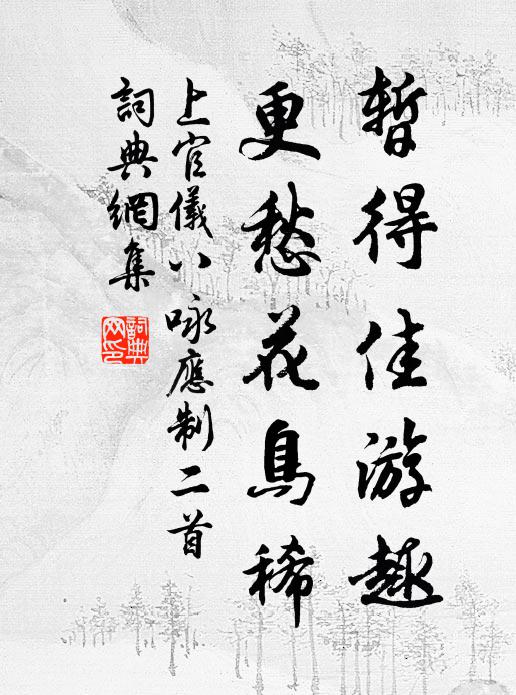 暫得佳游趣
更愁花鳥稀
上官儀八咏應制二首
詞典網集
詞典網印